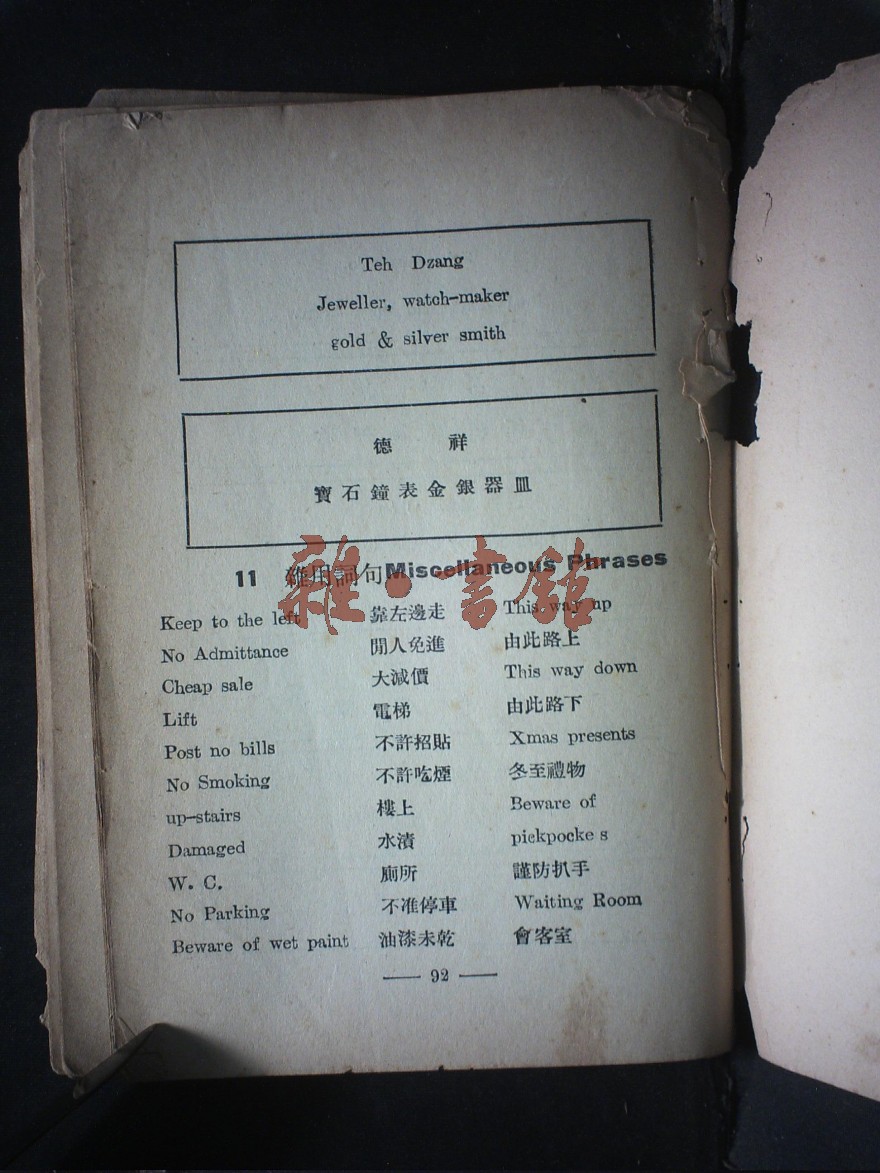 Teh Dzang
Jeweller, watch-maker
gold & silver smith
德 祥
寶石鐘表金銀器皿
11 雜用詞句 Miscellaneous Phrases
Keep to the left 靠左邊走 This way up
No Admittance 閒人免進 由此路上
Cheap sale 大減價 This way down
Lift 電梯 由此路下
Post no bills 不許招貼 Xmas presents
No Smoking 不許吃煙 冬至禮物
up-stairs 樓上 Beware of
Damaged 水漬 pickpocke s
W. C. 廁所 謹防扒手
No Parking 不准停車 Waiting Room
Beware of wet paint 油漆未乾 會客室
— 92 —
雜·書館